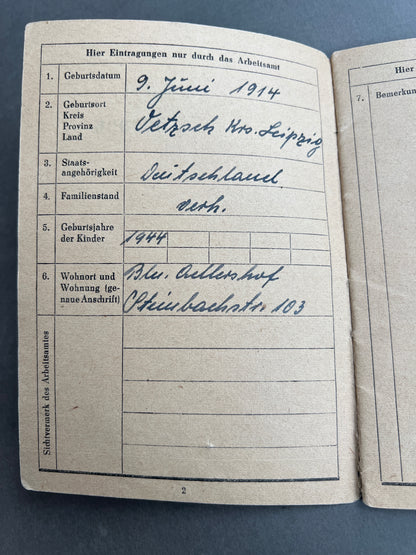 Hier Eintragungen nur durch das Arbeitsamt
1. Geburtsdatum 9. Juni 1914
2. Geburtsort
Kreis
Provinz
Land
Oetzsch Krs. Leipzig
3. Staats-
angehörigkeit
Deutschland
4. Familienstand verh.
5. Geburtsjahre
der Kinder
1944
6. Wohnort und
Wohnung (ge-
naue Anschrift)
Bln. Adlershof
Steinbachstr. 103
Sichtvermerk des Arbeitsamtes
2
Hier
7. Bemerkun